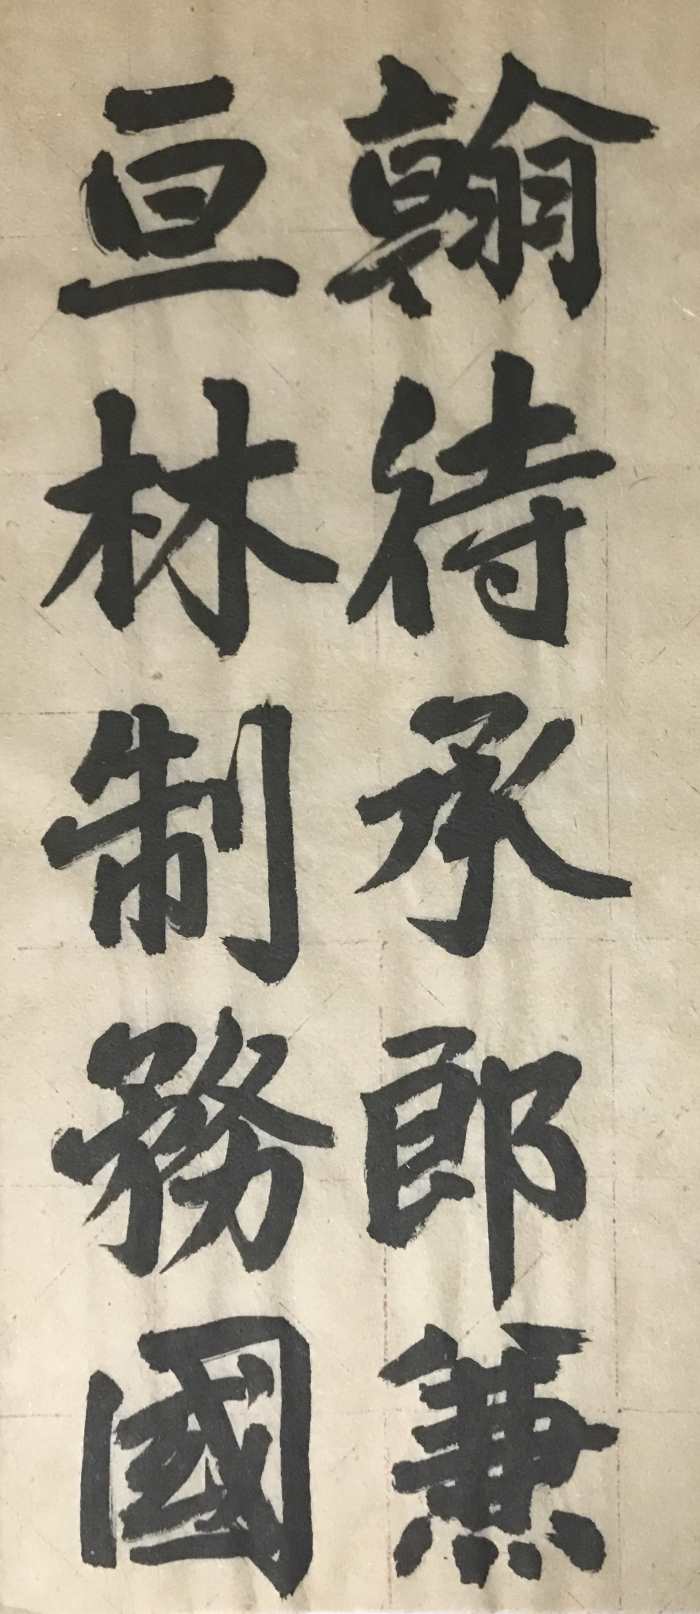 翰待承郎兼
亘林制務國